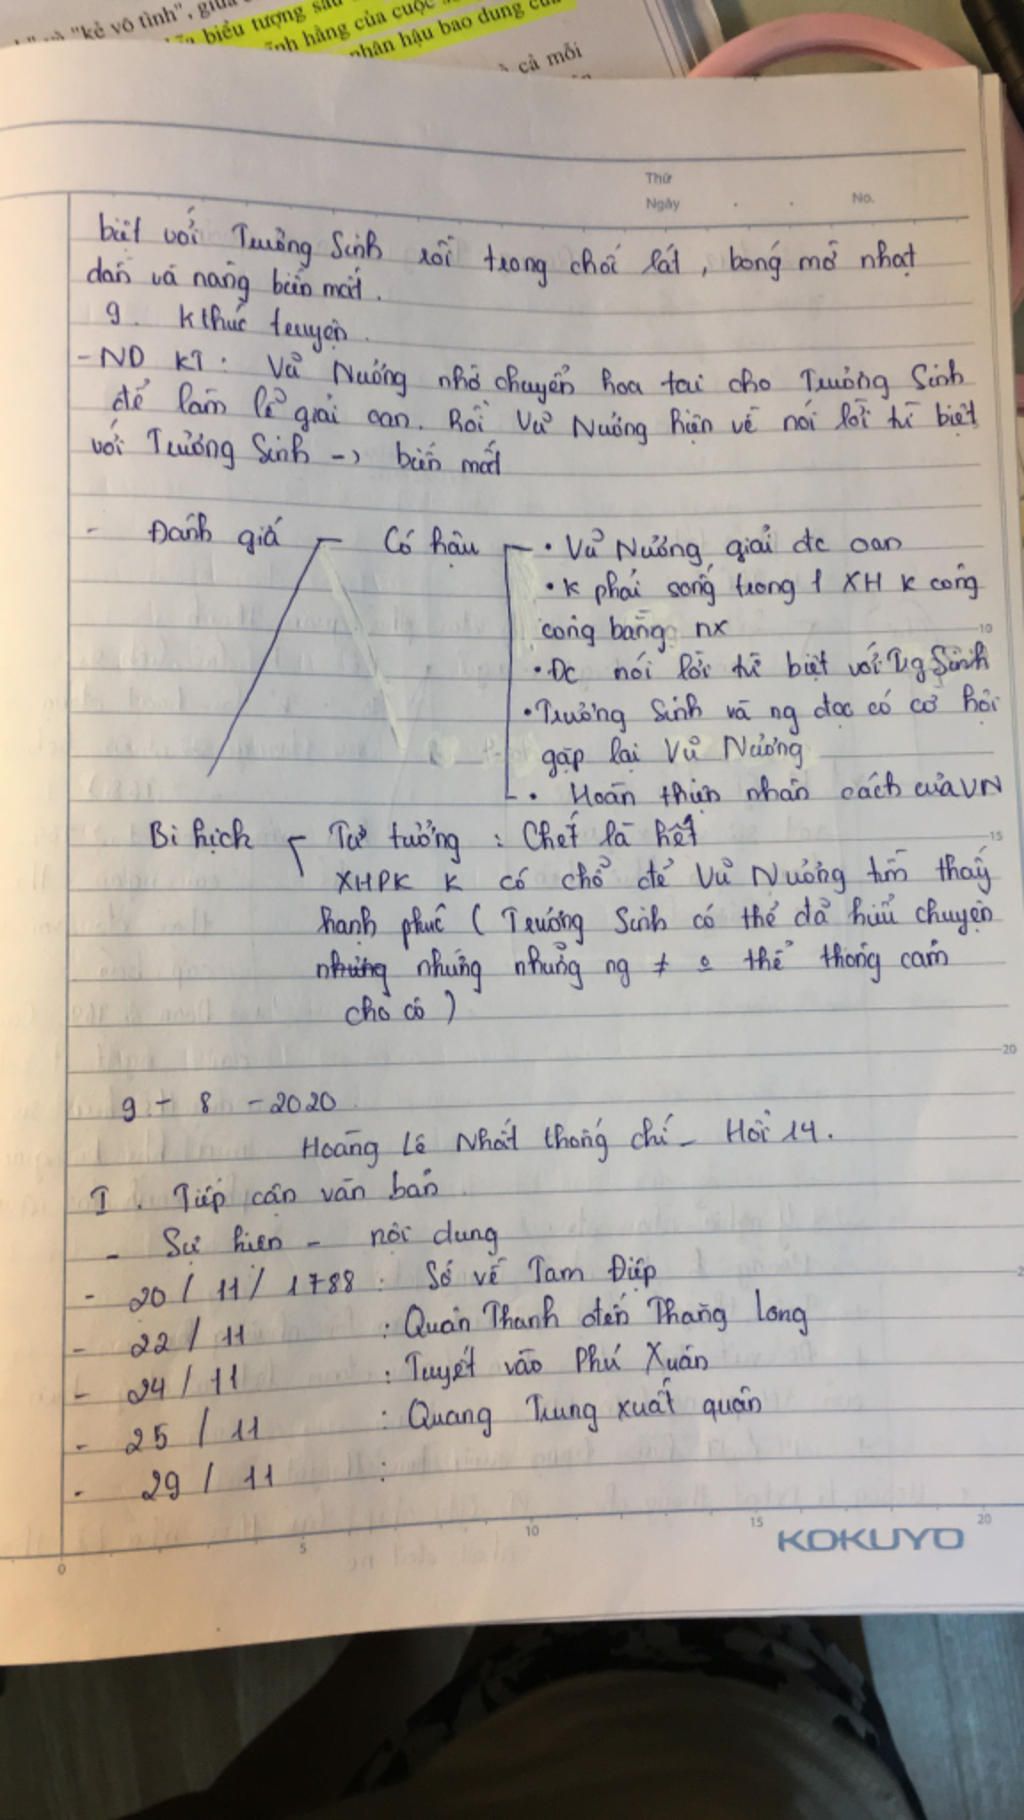 "kẻ vô tình", giữa
biểu tượng sâu
ĩnh hằng của cuộc
nhân hậu bao dung của
cả mỗi
Thứ
Ngày . . No.
biệt với Trương Sinh rồi trong chốc lát, bóng mờ nhạt
dần và nàng biến mất.
9. K thúc truyện.
- ND KT: Vũ Nương nhờ chuyển hoa tai cho Trương Sinh
để làm lễ giải oan. Rồi Vũ Nương hiện về nói lời từ biệt
với Trương Sinh -> biến mất
- Đánh giá Có hậu • Vũ Nương giải đc oan
• K phải sống trong 1 XH K công
công bằng nx
• Đc nói lời từ biệt với Trg Sinh
• Trương Sinh và ng đọc có cơ hội
gặp lại Vũ Nương
• Hoàn thiện nhân cách của VN
Bi kịch Tư tưởng : Chết là hết
XHPK K có chỗ để Vũ Nương tìm thấy
hạnh phúc (Trương Sinh có thể đã hiểu chuyện
những nhưng những ng ≠ o thể thông cảm
cho cô)
9 - 8 - 2020
Hoàng Lê Nhất thống chí - Hồi 14.
I. Tiếp cận văn bản
- Sự kiện - nội dung
- 20 / 11 / 1788 : Sở về Tam Điệp
- 22 / 11 : Quân Thanh đến Thăng Long
- 24 / 11 : Tuyết vào Phú Xuân
- 25 / 11 : Quang Trung xuất quân
- 29 / 11 :
10
15
20
0 5 10 15 20
KOKUYO